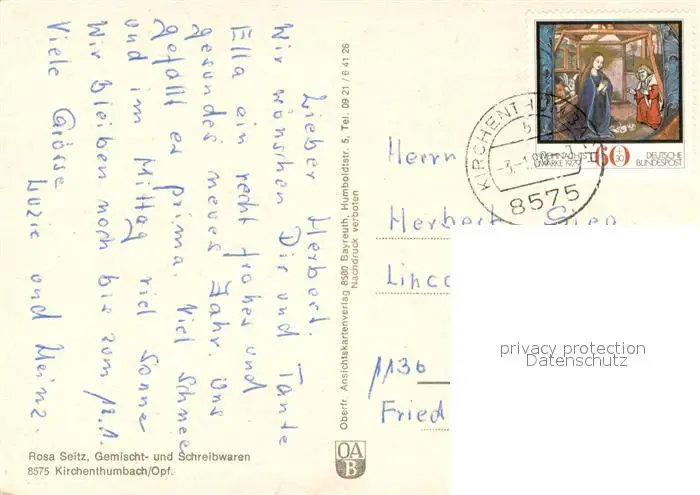 Lieber Herbert.
Wir wünschen Dir und Tante
Ella ein recht frohes und
gesundes neues Jahr. Uns
gefällt es prima. Viel Schnee
und im Mittag viel Sonne
Wir bleiben noch bis zum 12.1.
Viele Grüsse
Luzie und Heinz.
Rosa Seitz, Gemischt- und Schreibwaren
8575 Kirchenthumbach/Opf.
Oberfr. Ansichtskartenverlag 8580 Bayreuth, Humboldtstr. 5, Tel. 09 21 / 6 41 26
Nachdruck verboten
OA
B
KIRCHENTHUMBACH
8575
WEIHNACHTS
MARKE 1979
60
+30
DEUTSCHE
BUNDESPOST
Herrn
Herbert
1136
Fried
privacy protection
Datenschutz